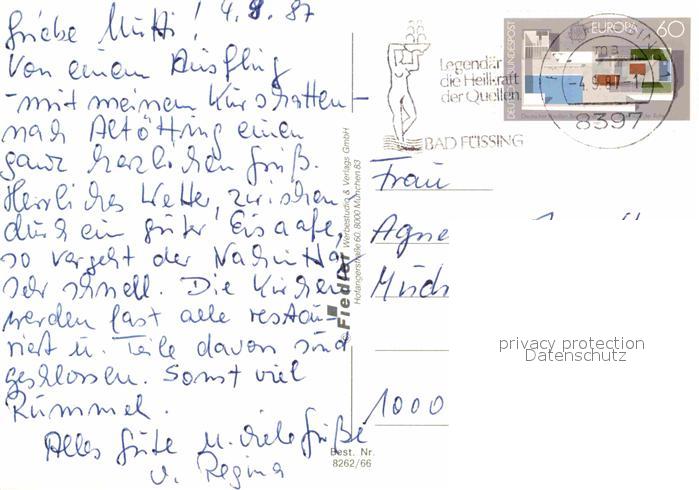 Liebe Mutti! 4.9.87
Von einem Ausflug
- mit meinem Kurschatten -
nach Altötting einen
ganz herzlichen Gruß.
Herrliches Wetter, zwischen
durch ein guter Eiscafe,
so vergeht der Nachmittag
sehr schnell. Die Kirchen
werden fast alle restau-
riert u. Teile davon sind
geschlossen. Sonst viel
Rummel.
Alles Gute u. viele Grüße
v. Regina
Fiedler Werbestudio & Verlags GmbH
Hofangerstraße 60, 8000 München 83
Best. Nr.
8262/66
Legendär
die Heilkraft
der Quellen
BAD FÜSSING
DEUTSCHE BUNDESPOST
EUROPA 60
-4.9.87-
8397
Frau
Agne
1000
privacy protection
Datenschutz